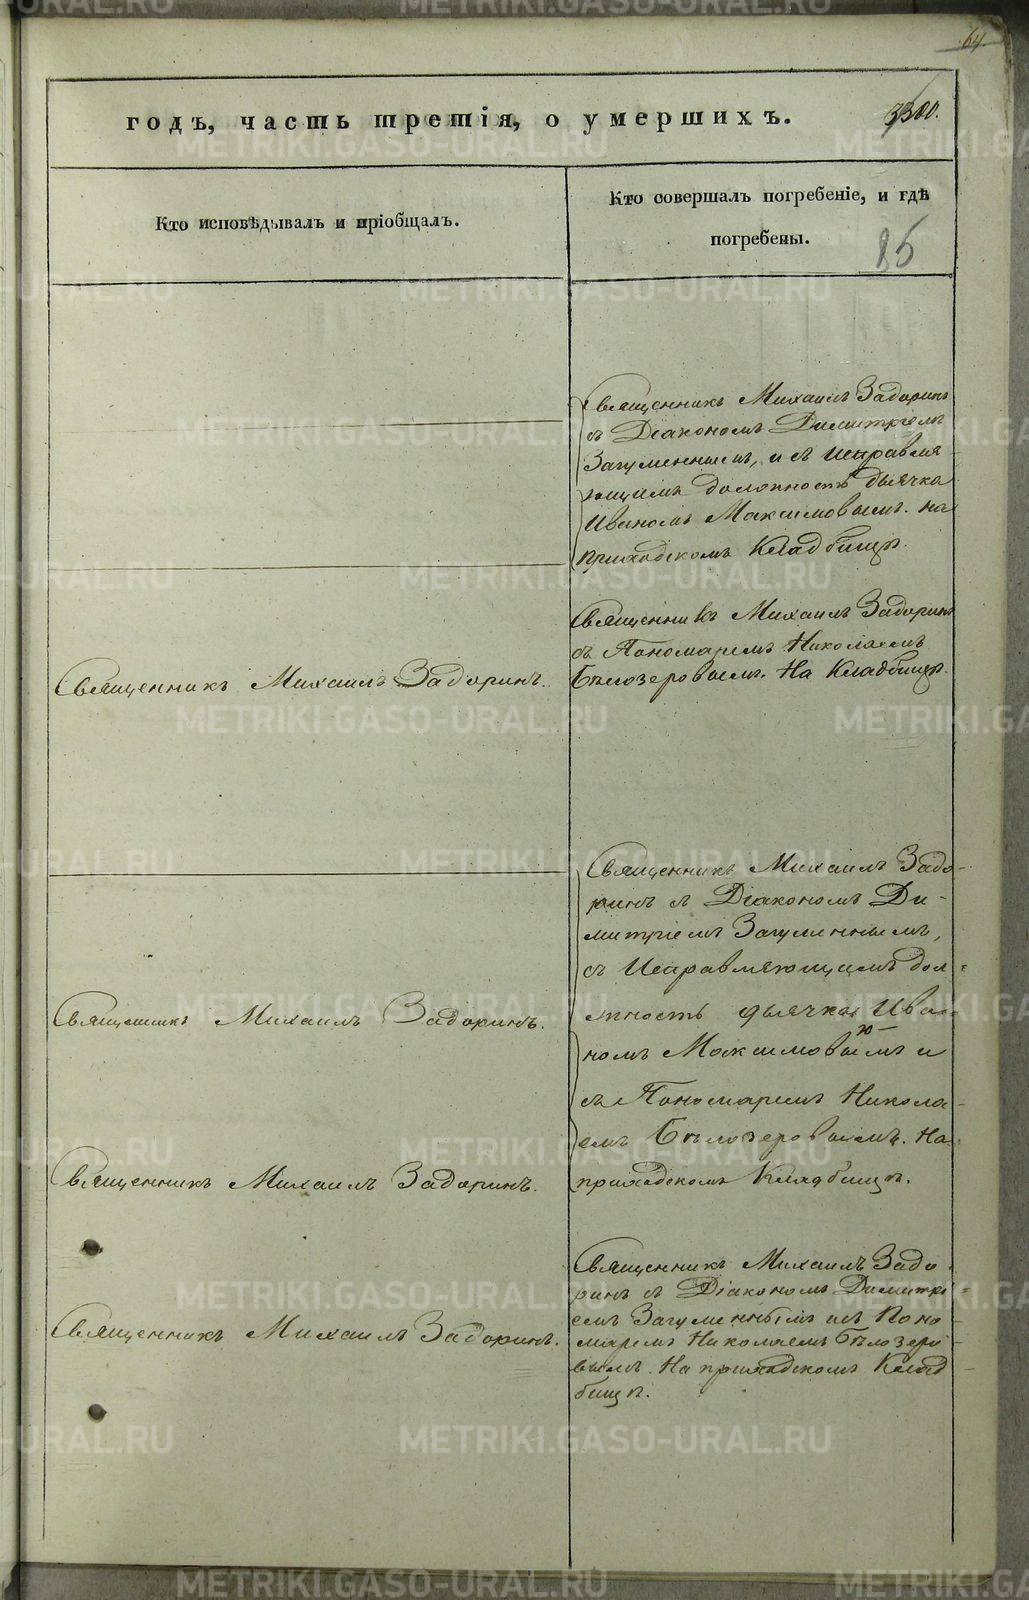 64.
годъ, часть третія, о умершихъ.
Кто исповѣдывалъ и пріобщалъ.
Кто совершалъ погребеніе, и гдѣ
погребены.
85
Священникъ Михаилъ Задоринъ
съ Діакономъ Димитріемъ
Загуменнымъ, и съ Исправля-
ющимъ должность дьячка
Иваномъ Максимовымъ. на
приходскомъ Кладбищѣ.
Священникъ Михаилъ Задоринъ
съ Пономаремъ Николаемъ
Бѣлозеровымъ. На Кладбищѣ.
Священникъ Михаилъ Задоринъ.
Священникъ Михаилъ Задо-
ринъ съ Діакономъ Ди-
митріемъ Загуменнымъ,
съ Исправляющимъ дол-
жность дьячка Ива-
номъ Максимовымъ и
съ Пономаремъ Никола-
емъ Бѣлозеровымъ. На
приходскомъ Кладбищѣ.
Священникъ Михаилъ Задоринъ.
Священникъ Михаилъ Задоринъ.
Священникъ Михаилъ Задо-
ринъ съ Діакономъ Димитрі-
емъ Загуменнымъ и съ Поно-
маремъ Николаемъ Бѣлозеро-
вымъ. На приходскомъ Клад-
бищѣ.
Священникъ Михаилъ Задоринъ.
METRIKI.GASO-URAL.RU